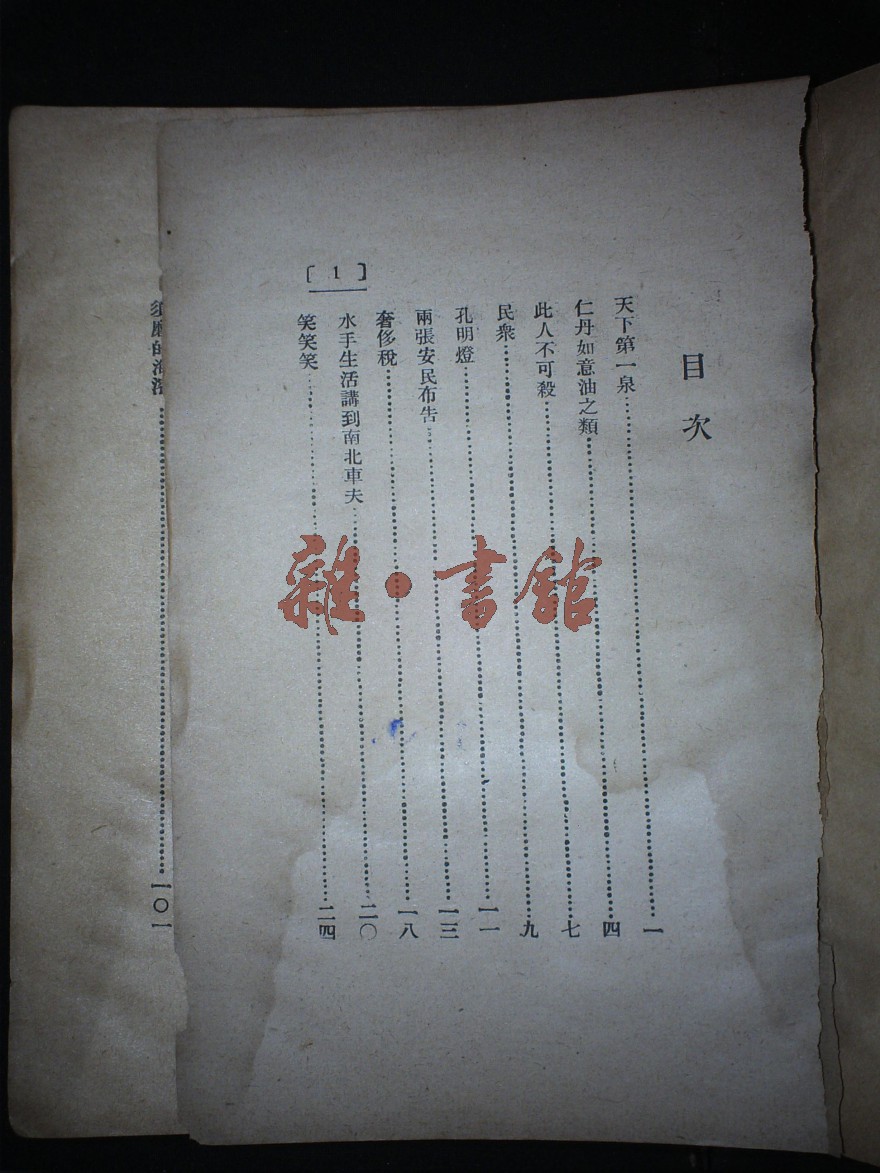 目次
天下第一泉……一
仁丹如意油之類……四
此人不可殺……七
民衆……九
孔明燈……一一
兩張安民布告……一三
奢侈稅……一八
水手生活講到南北車夫……二〇
笑笑笑……二四
[1]
須磨的海濱……一〇一
雜·書館